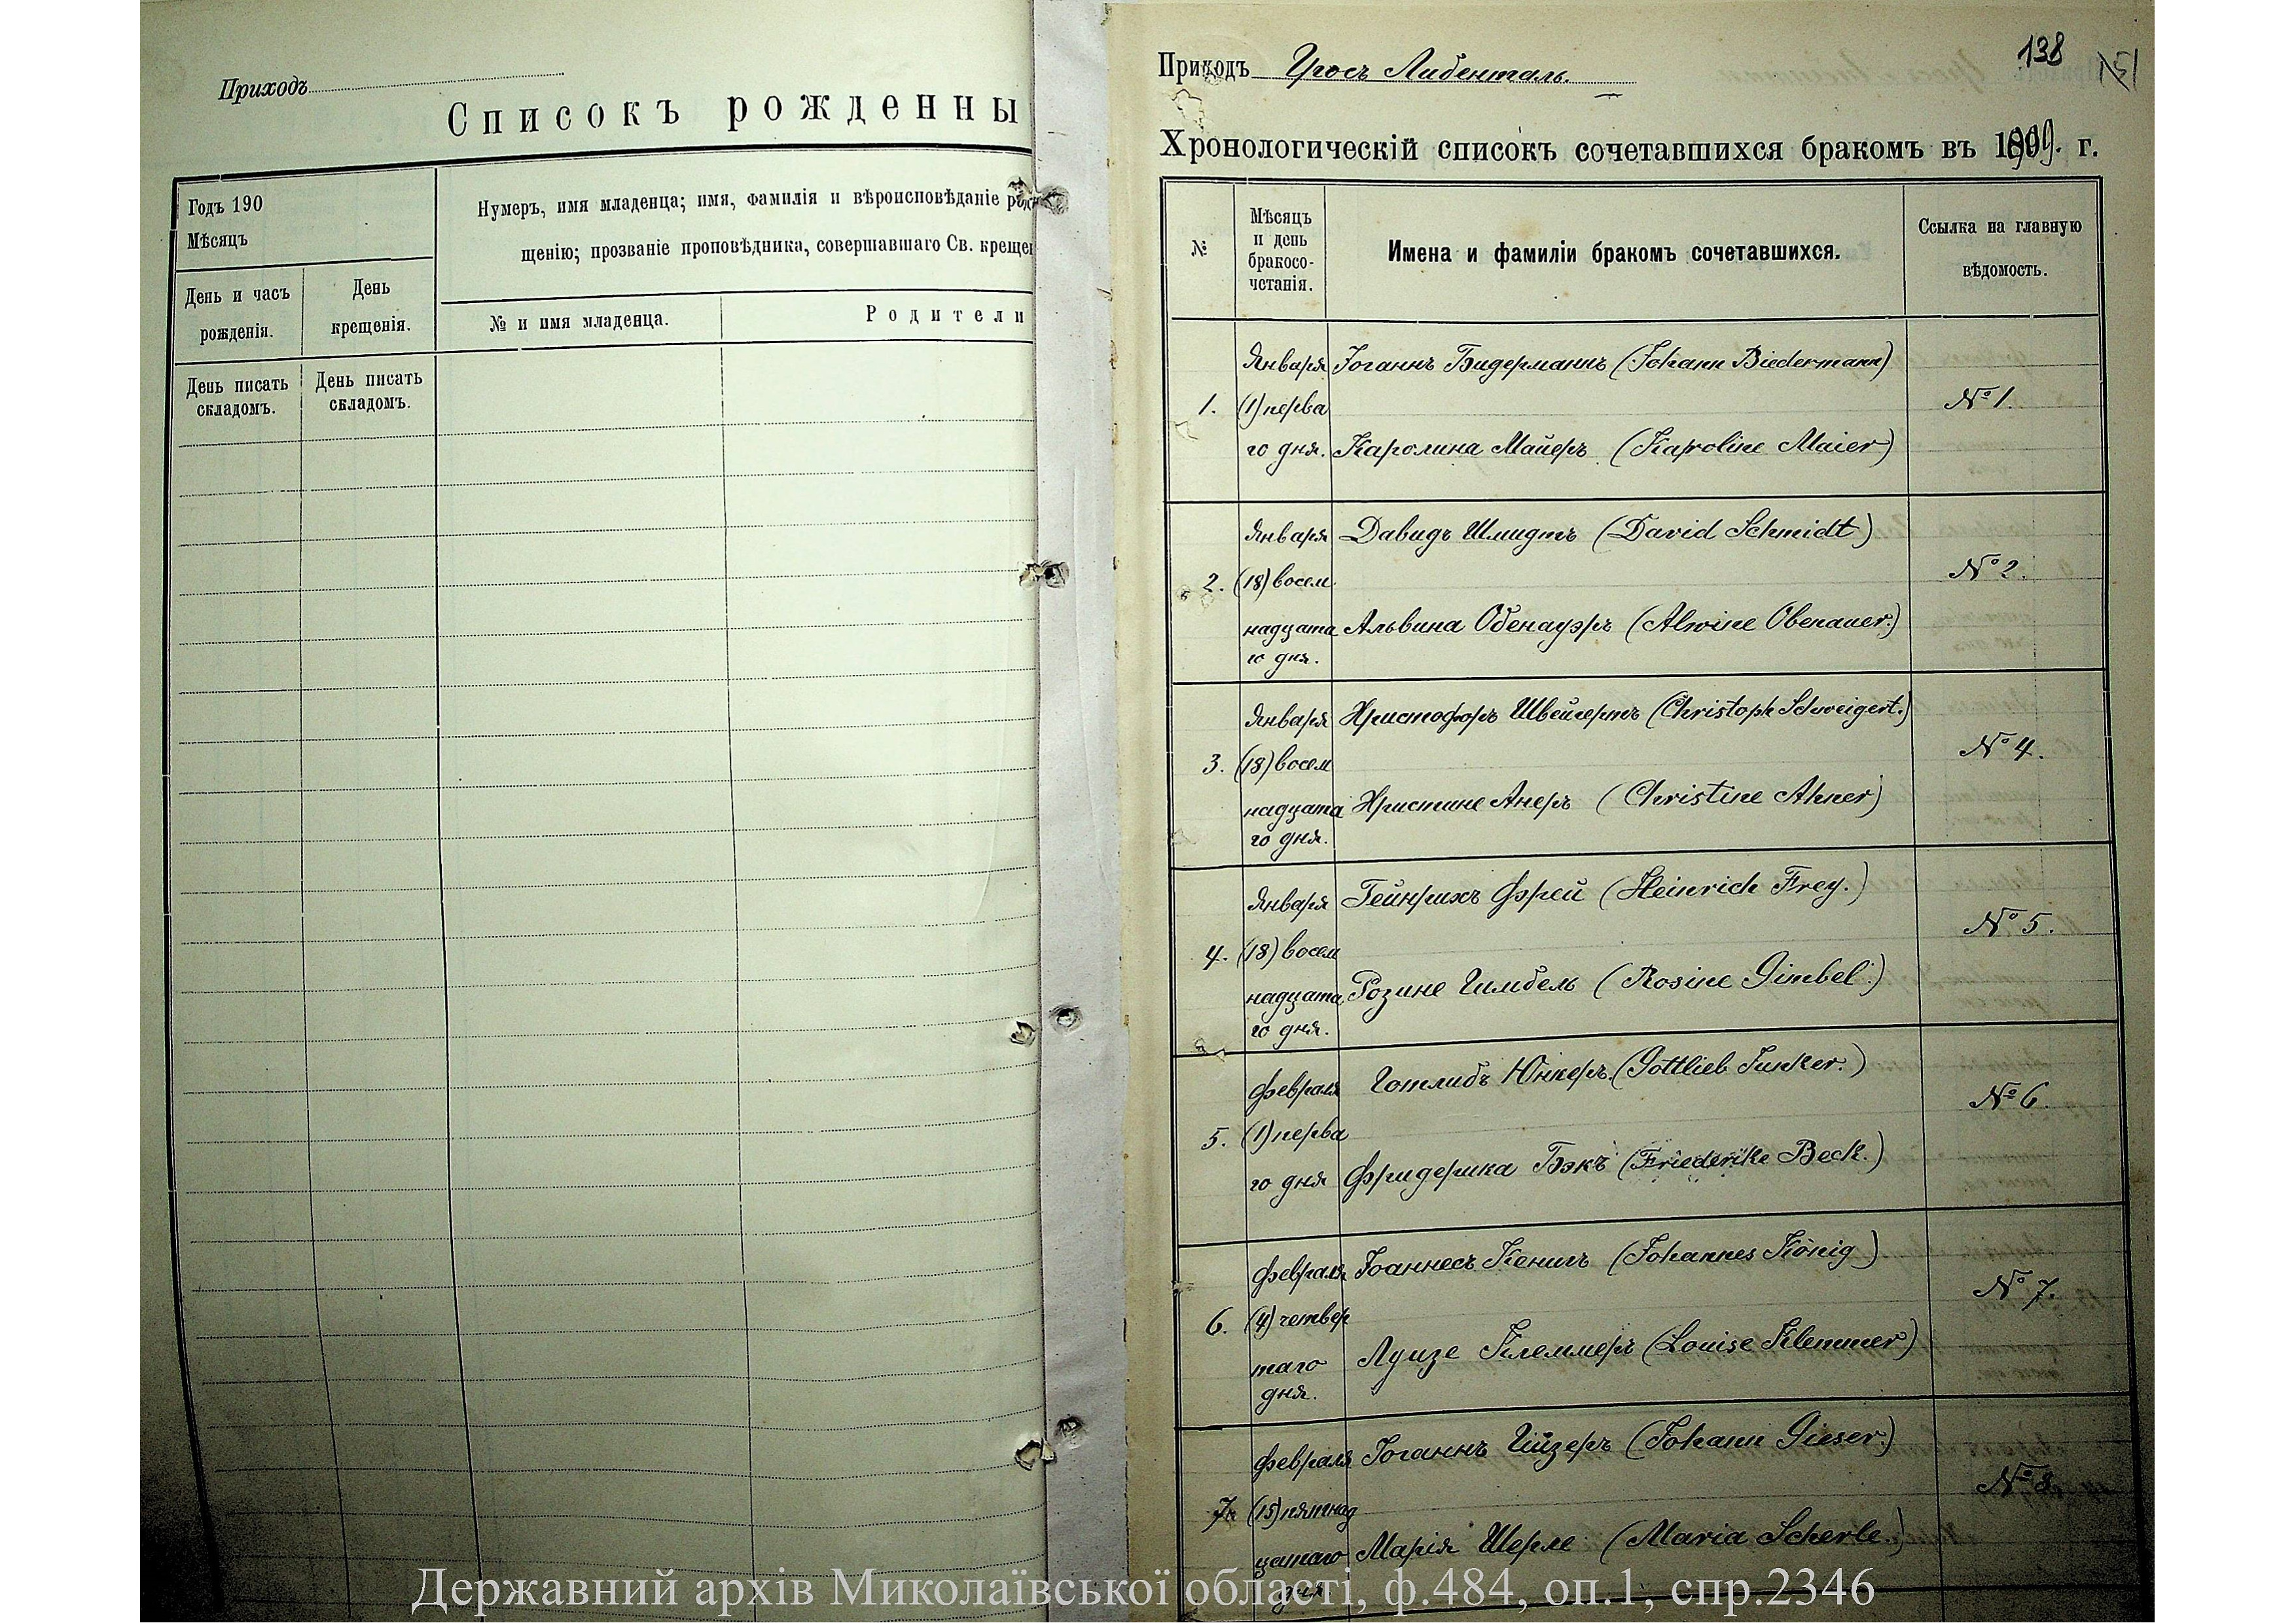 Приходъ
Списокъ рожденны
Годъ 190
Мѣсяцъ
Нумеръ, имя младенца; имя, фамилія и вѣроисповѣданіе род
щенію; прозваніе проповѣдника, совершавшаго Св. креще
День и часъ
рожденія.
День
крещенія.
№ и имя младенца.
Родители
День писать
складомъ.
День писать
складомъ.
138
151
Приходъ Гросъ Либенталь.
Хронологическій списокъ сочетавшихся бракомъ въ 1909. г.
№
Мѣсяцъ
и день
бракосо-
четанія.
Имена и фамиліи бракомъ сочетавшихся.
Ссылка на главную
вѣдомость.
Января Іоганнъ Бидерманнъ (Johann Biedermann)
1. (1) перва №1.
го дня. Каролина Майеръ (Karoline Maier)
Января Давидъ Шмидтъ (David Schmidt)
2. (18) восем №2.
надцата Альвина Обенауэръ (Alwine Obenauer.)
го дня.
Января Христофоръ Швейгертъ (Christoph Schweigert.)
3. (18) восем №4.
надцата Христине Анеръ (Christine Ahner)
го дня.
Января Гейнрихъ Фрей (Heinrich Frey.)
4. (18) восем №5.
надцата Розине Гимбель (Rosine Gimbel.)
го дня.
Февраля Готлибъ Юнкеръ. (Gottlieb Junker.)
5. (1) перва №6.
го дня Фридерика Бэкъ (Friederike Beck.)
Февраля Іоаннесъ Кенигъ (Johannes König)
6. (4) четвер №7.
таго Луизе Клеммеръ (Louise Klemmer)
дня.
Февраля Іоганнъ Гизеръ (Johann Gieser.)
7. (15) пятнад №8.
цатаго Марія Шерле (Maria Scherle.)
дня
Державний архів Миколаївської області, ф.484, оп.1, спр.2346